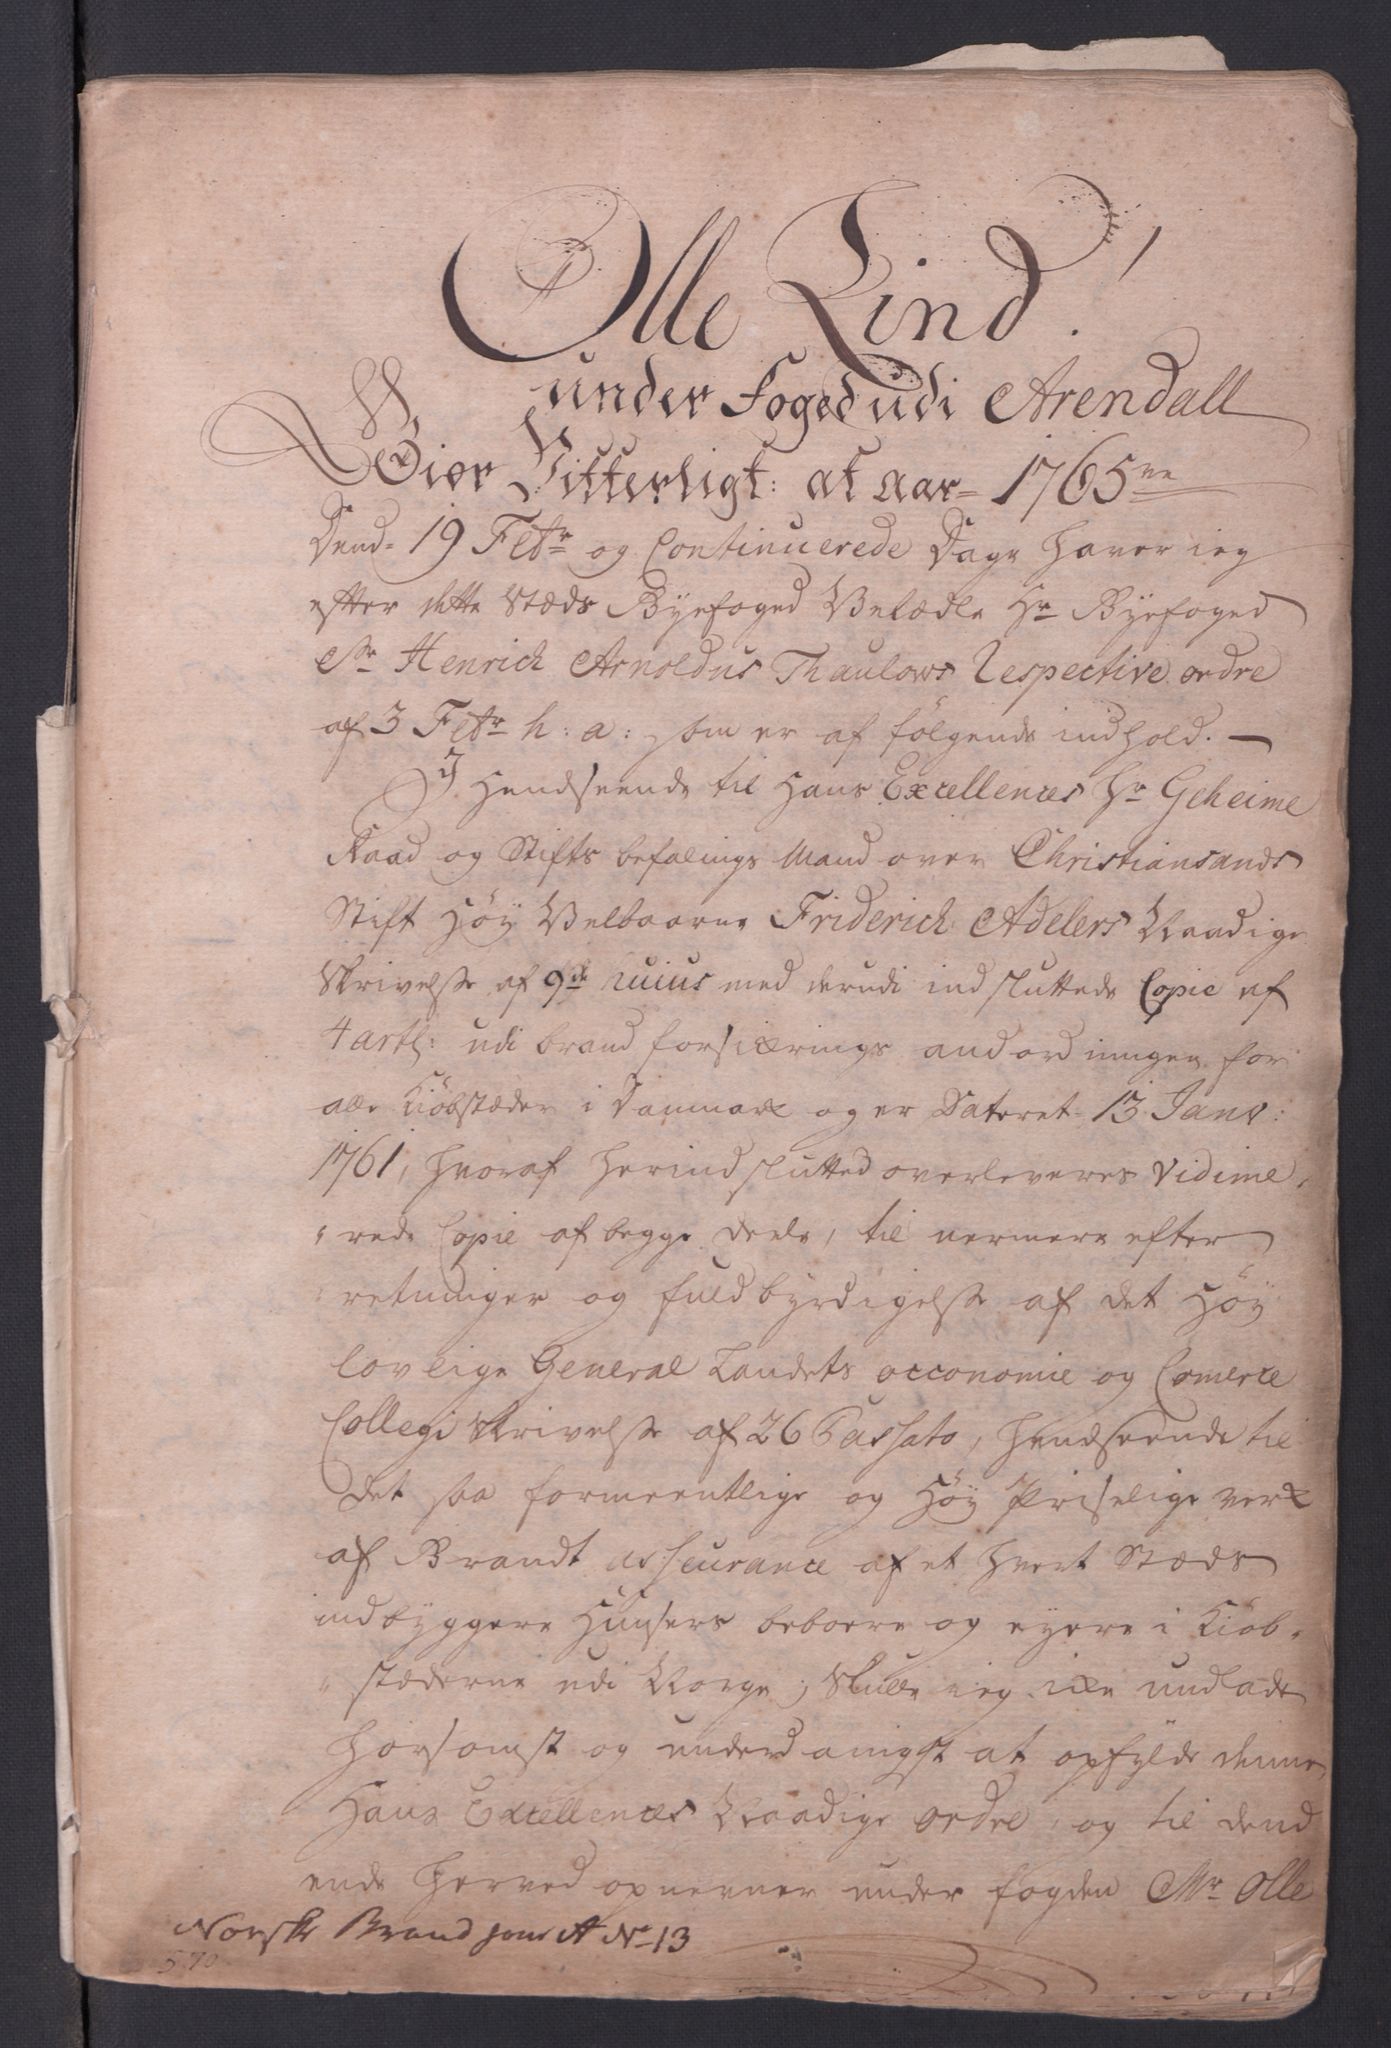 Olle Lind
under Foged udi Arendall
Giør Vitterligt: at Aar= 1765ve
Dend= 19 Febr og Continuerede Dage haver ieg
efter dette Stæds Byefoged Velædle Hr Byefoged
Sr Henrich Arnoldus Thaulows Respective ordre
af 3 Febr h: a: som er af følgende indhold. —
I Hendseende til Hans Excellences Hr Geheime
Raad og Stifts befalings Mand over Christiansands
Stift Høy Velbaarne Friderich Adelers Naadige
Skrivelse af 9de huius med derudi indsluttede Copie af
4 artl: udi brand forsickrings anordningen for
alle Kiøbstæder i Danmark og er Dateret= 13 Janv:
1761, hvoraf herind slutted overleveres Vidime,
rede Copie af begge deele, til nermere efter
retninger og fuldbyrdigelse af det Høy
lovlige General Landets oeconomie og Comerce
Collegi Skrivelse af 26 Passato, hendseende til
det saa formeentlige og Høy Priselige verk
af Brandt asseurance af et hvert Stæds
indbyggere Huusers beboere og eyere i Kiøb,
stæderne udi Norge; Skulle ieg icke undlade
horsomst og underdanigst at opfylde denne
Hans Excellences Naadige ordre, og til dend
ende herved opnevner under fogden Mr Olle
Norske Brand No 13
570